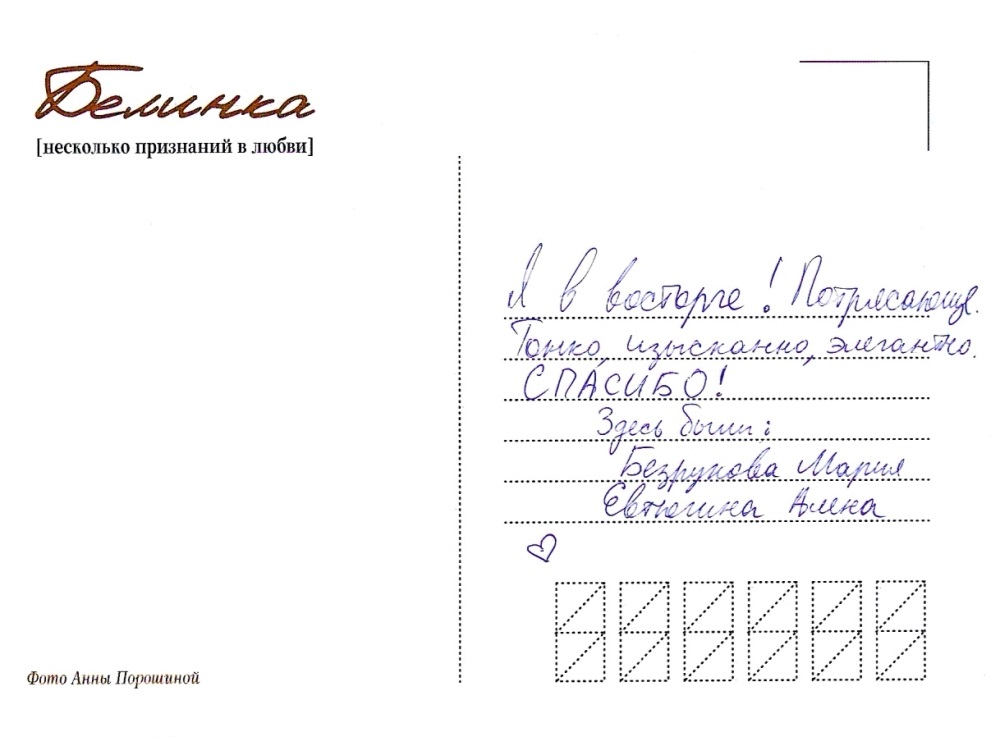 Белинка
[несколько признаний в любви]
Я в восторге! Потрясающе.
Тонко, изысканно, элегантно.
СПАСИБО!
Здесь были:
Безрукова Мария
Евтюгина Алена
Фото Анны Порошиной